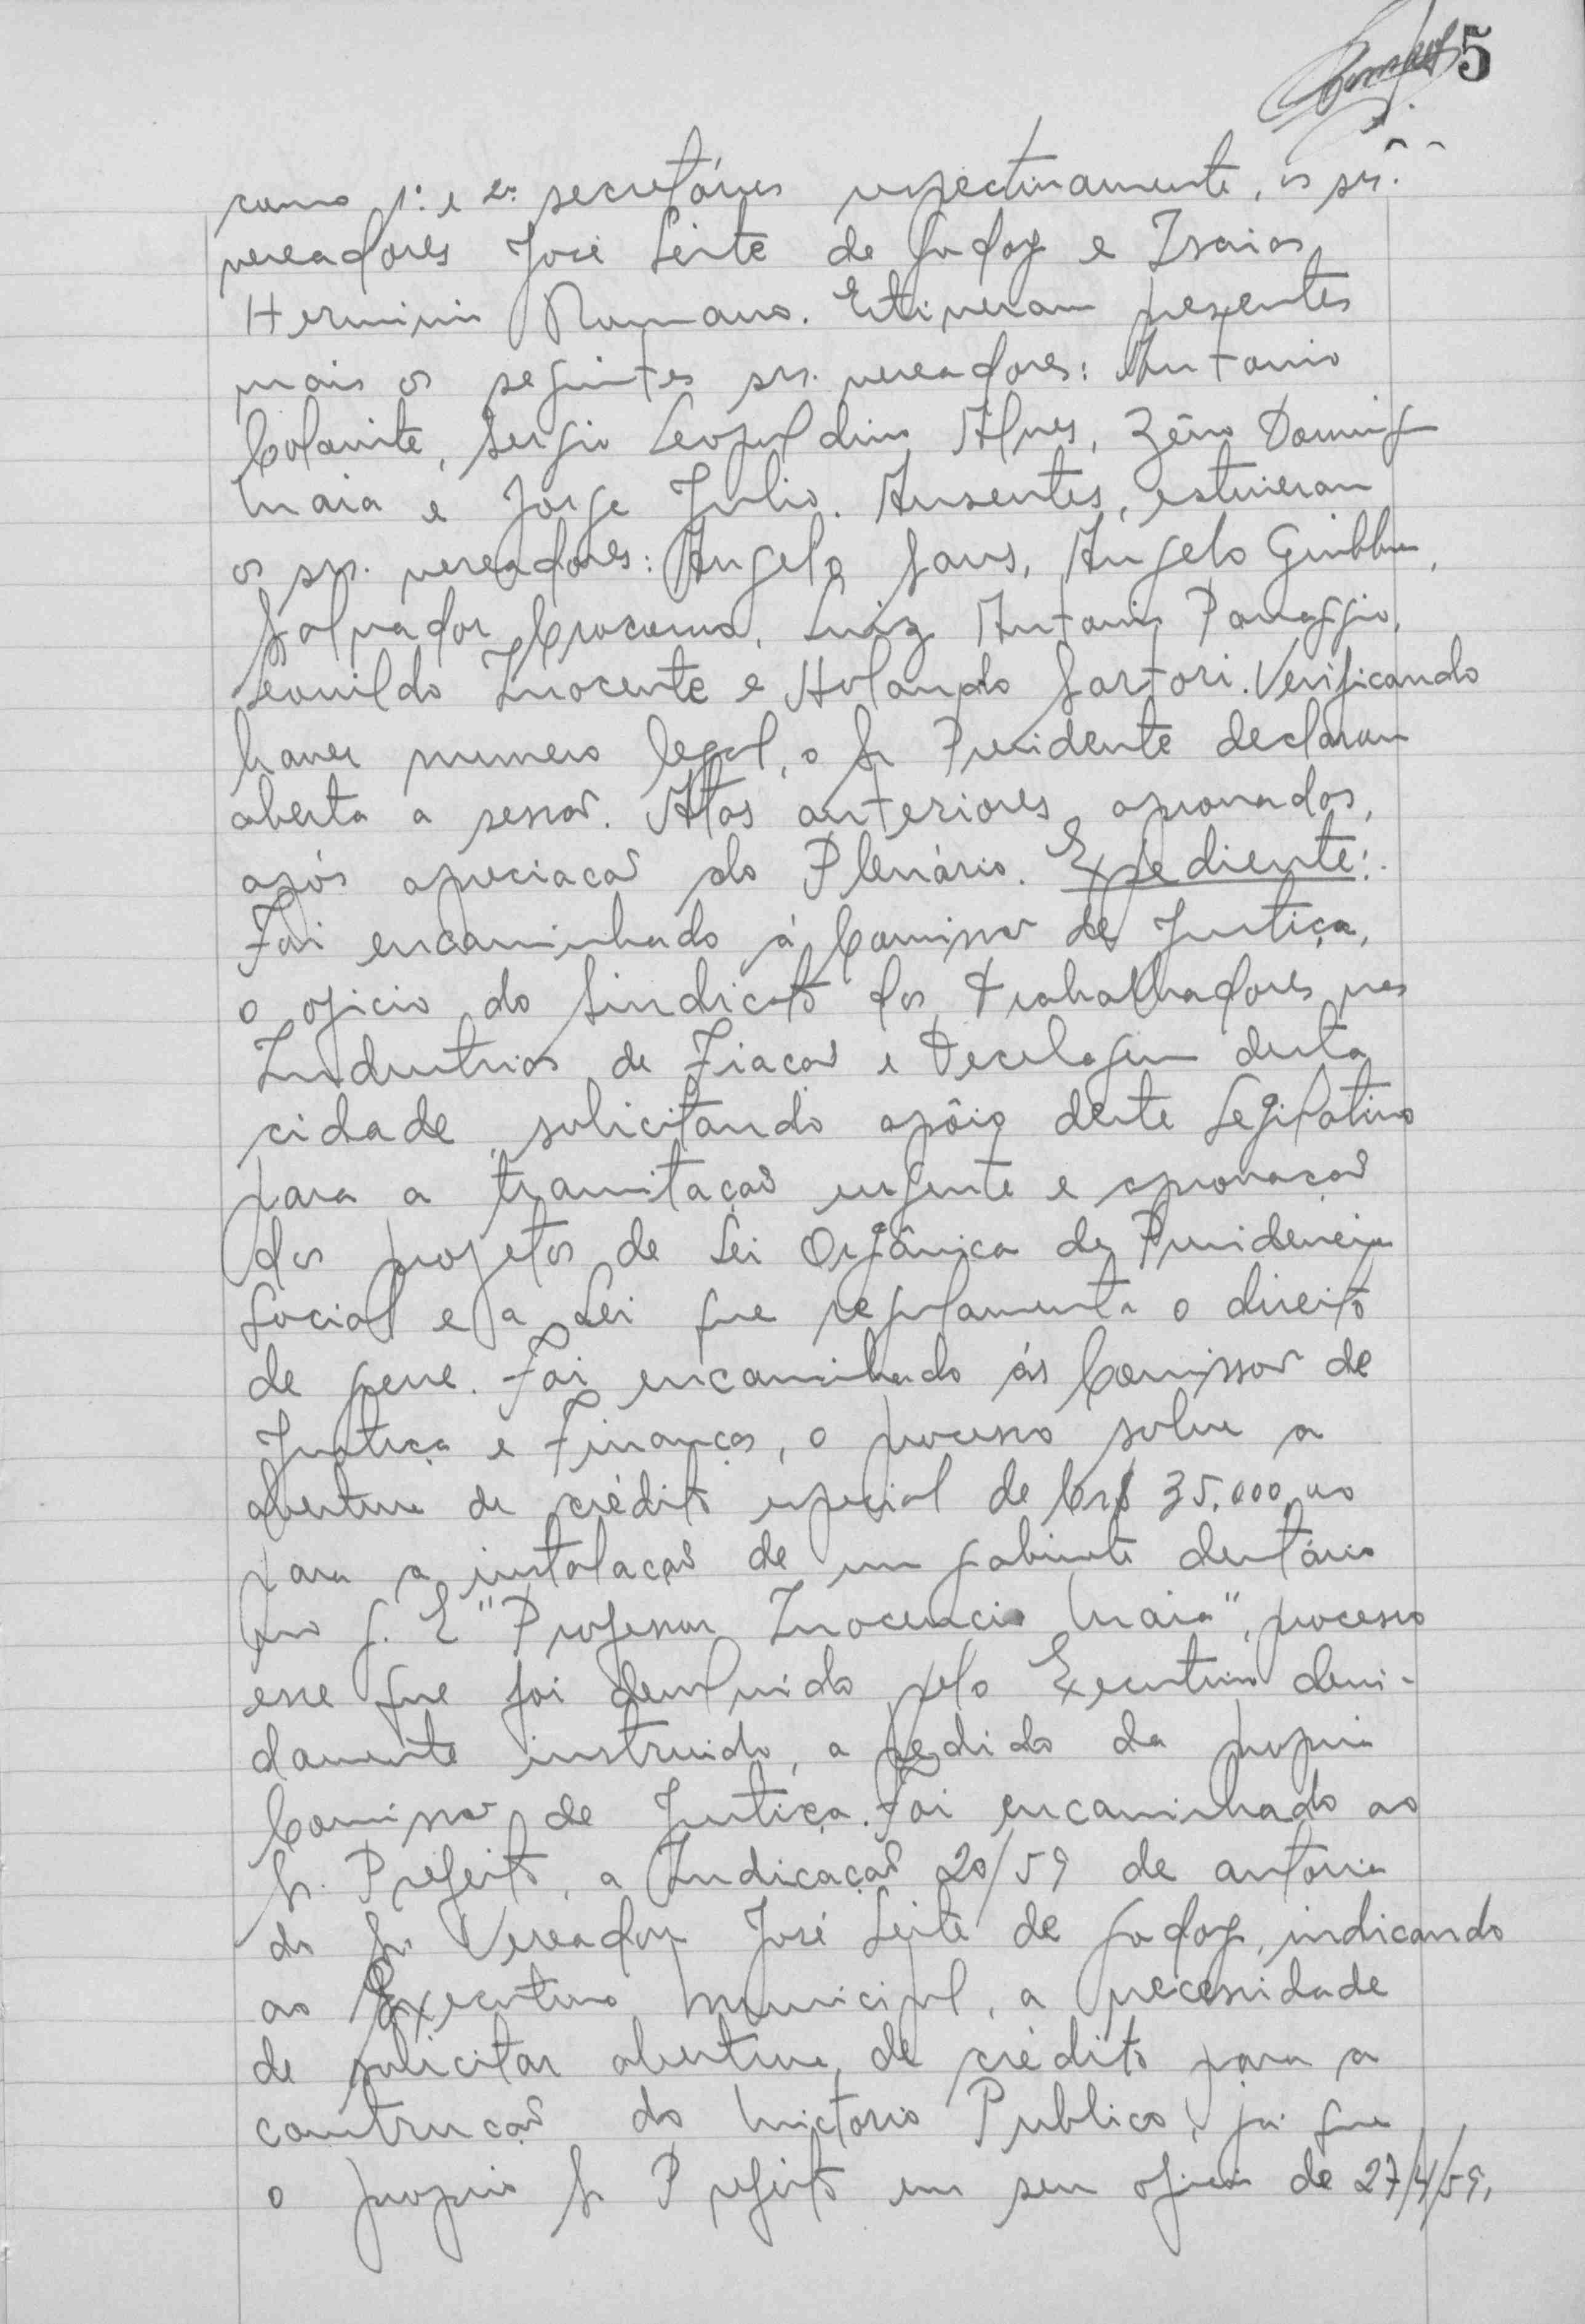 5
como 1º e 2º secretários respectivamente, os srs.
vereadores José Leite de Godoy e Isaias
Herminio Romano. Estiveram presentes
mais os seguintes srs. vereadores: Antonio
Colavite, Sergio Leopoldino Alves, Zêno Domingos
Maia e Jorge Julio. Ausentes, estiveram
os srs. vereadores: Angelo Sans, Angelo
Salvador Crocomo, Luiz Antonio Panaggio,
Leonildo Inocente e Holando Sartori. Verificando
haver numero legal, o Sr Presidente declarou
aberta a sessão. Atas anteriores aprovadas,
após apreciação do Plenário. Expediente:
Foi encaminhado á Comissão de Justiça,
o oficio do Sindicato dos Trabalhadores nas
Industrias de Fiação e Tecelagem desta
cidade, solicitando apôio deste Legislativo
para a tramitação urgente e aprovação
dos projetos de Lei Orgânica da Previdencia
Social e a Lei que regulamenta o direito
de greve. Foi encaminhado ás Comissão de
Justiça e Finanças, o processo sobre a
abertura de crédito especial de Cr$ 35.000,00
para a instalação de um gabinete dentário
no G. E "Professor Inocencio Maia", processo
esse que foi devolvido pelo Executivo devi-
damente instruido, a pedido da propria
Comissão de Justiça. Foi encaminhado ao
Sr. Prefeito, a Indicação 20/59 de autoria
do Sr Vereador José Leite de Godoy, indicando
ao Executivo Municipal, a necessidade
de solicitar abertura de crédito para a
construção do Mictorio Publico, já que
o proprio Sr Prefeito em seu oficio de 27/4/59,